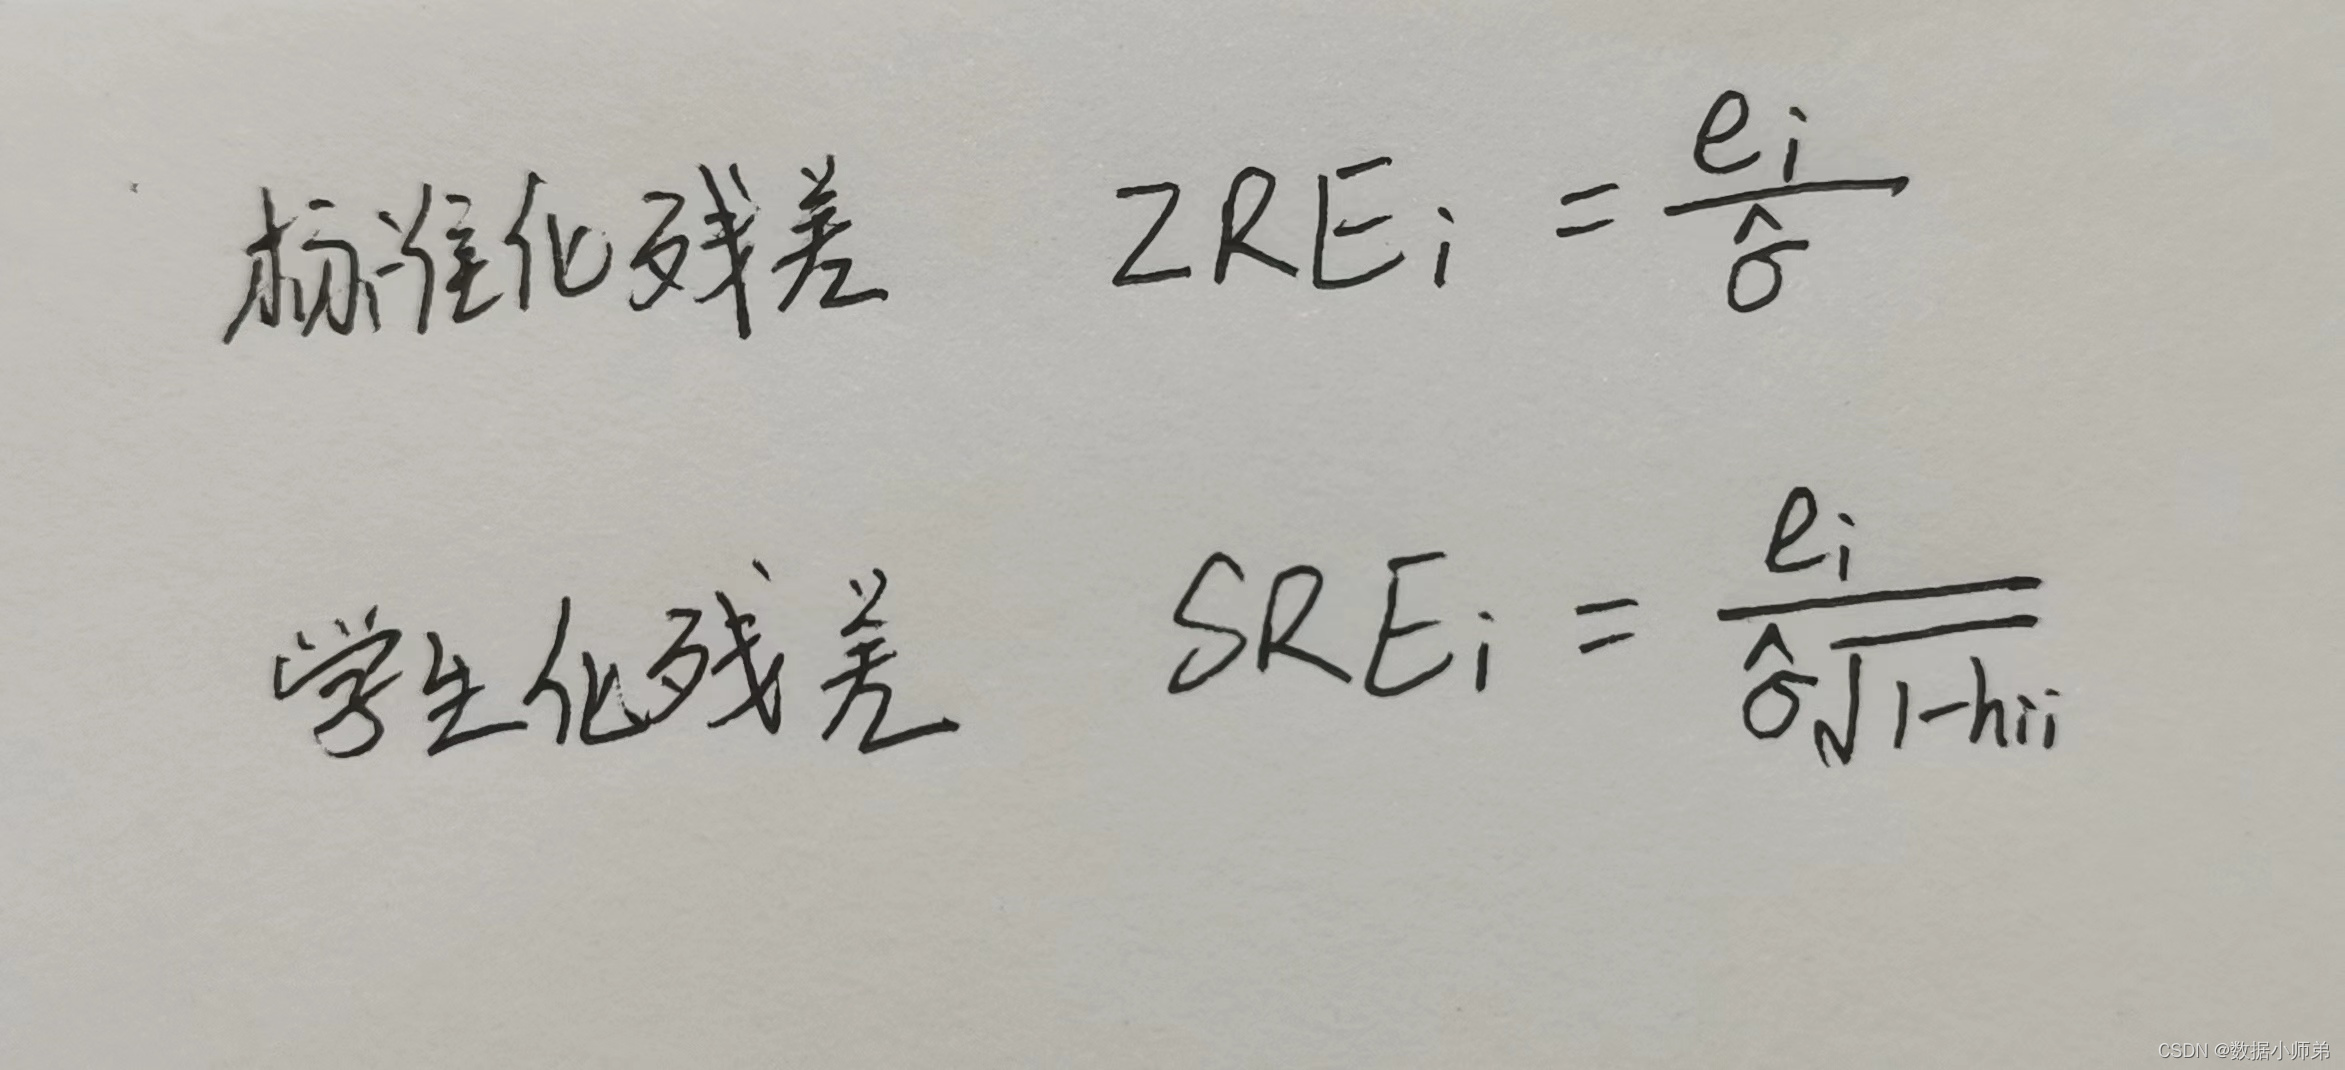 标准化残差 ZREi = ei / σ̂
学生化残差 SREi = ei / σ̂√1-hii
CSDN @数据小师弟